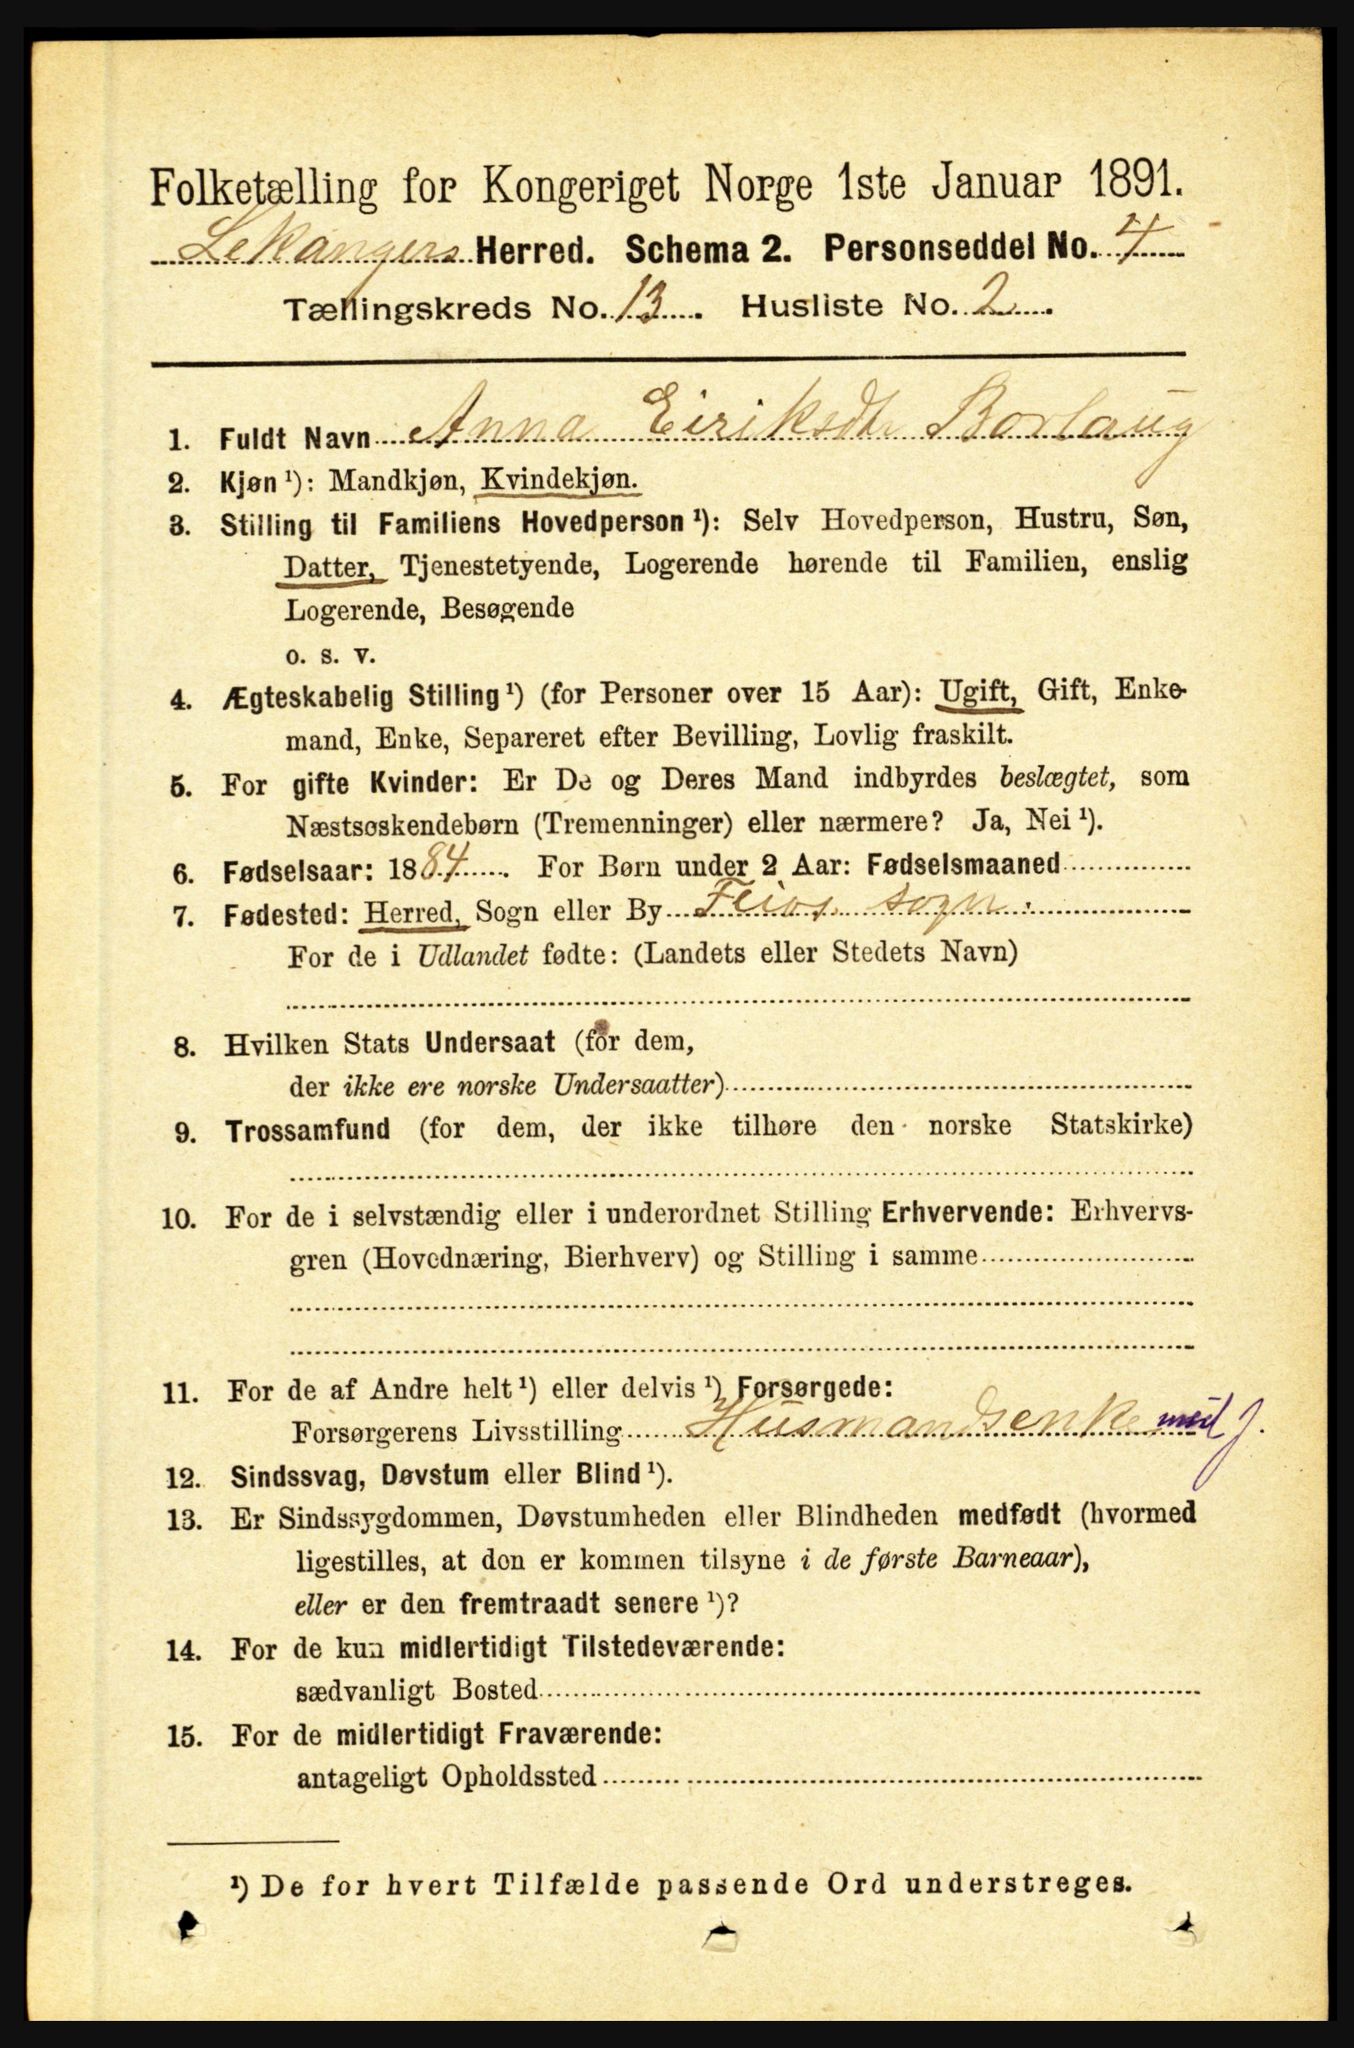 Folketælling for Kongeriget Norge 1ste Januar 1891.
Lekangers Herred. Schema 2. Personseddel No. 4
Tællingskreds No. 13. Husliste No. 2.
1. Fuldt Navn Anna Eiriksdtr Borlaug
2. Kjøn ¹): Mandkjøn, Kvindekjøn.
3. Stilling til Familiens Hovedperson ¹): Selv Hovedperson, Hustru, Søn,
Datter, Tjenestetyende, Logerende hørende til Familien, enslig
Logerende, Besøgende
o. s. v.
4. Ægteskabelig Stilling ¹) (for Personer over 15 Aar): Ugift, Gift, Enke-
mand, Enke, Separeret efter Bevilling, Lovlig fraskilt.
5. For gifte Kvinder: Er De og Deres Mand indbyrdes beslægtet, som
Næstsøskendebørn (Tremenninger) eller nærmere? Ja, Nei ¹).
6. Fødselsaar: 1884. For Børn under 2 Aar: Fødselsmaaned
7. Fødested: Herred, Sogn eller By Feios sogn.
For de i Udlandet fødte: (Landets eller Stedets Navn)
8. Hvilken Stats Undersaat (for dem,
der ikke ere norske Undersaatter)
9. Trossamfund (for dem, der ikke tilhøre den norske Statskirke)
10. For de i selvstændig eller i underordnet Stilling Erhvervende: Erhvervs-
gren (Hovednæring, Bierhverv) og Stilling i samme
11. For de af Andre helt ¹) eller delvis ¹) Forsørgede:
Forsørgerens Livsstilling Husmandsenke med J.
12. Sindssvag, Døvstum eller Blind ¹).
13. Er Sindssygdommen, Døvstumheden eller Blindheden medfødt (hvormed
ligestilles, at den er kommen tilsyne i de første Barneaar),
eller er den fremtraadt senere ¹)?
14. For de kun midlertidigt Tilstedeværende:
sædvanligt Bosted
15. For de midlertidigt Fraværende:
antageligt Opholdssted
¹) De for hvert Tilfælde passende Ord understreges.